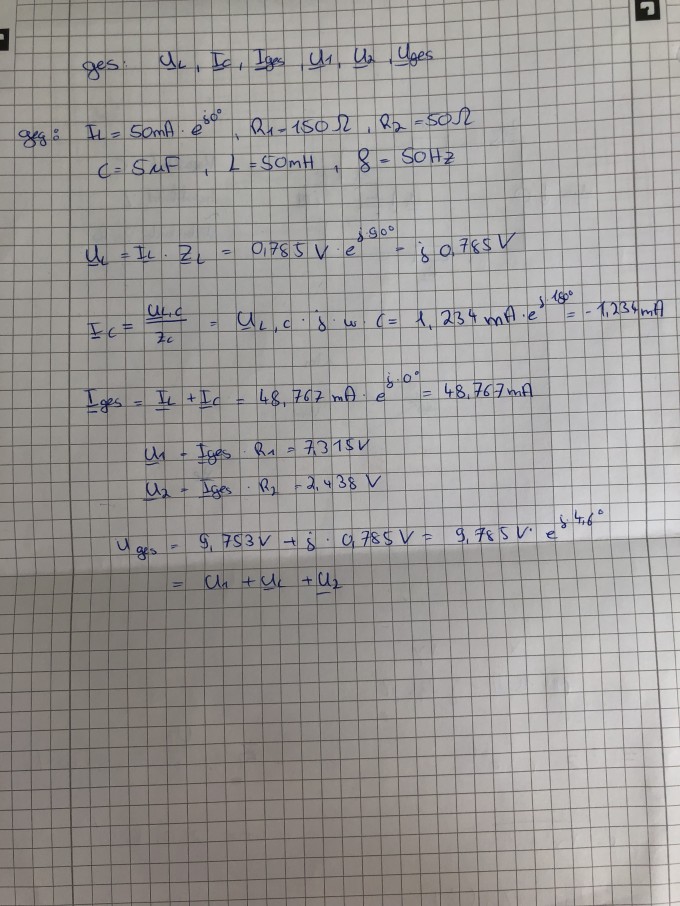 ges: U_L, I_C, I_ges, U_1, U_2, U_ges
geg: I_L = 50mA · e^j0°, R_1 = 150Ω, R_2 = 50Ω
C = 5µF, L = 50mH, f = 50Hz
U_L = I_L · Z_L = 0,785 V · e^j·90° = j 0,785 V
I_C = U_L,C / Z_C = U_L,C · j · w · C = 1,234 mA · e^j·180° = -1,234mA
I_ges = I_L + I_C = 48,767 mA · e^j·0° = 48,767mA
U_1 = I_ges · R_1 = 7,315V
U_2 = I_ges · R_2 = 2,438 V
U_ges = 9,753V + j · 0,785V = 9,785V · e^j·4,6°
= U_1 + U_L + U_2